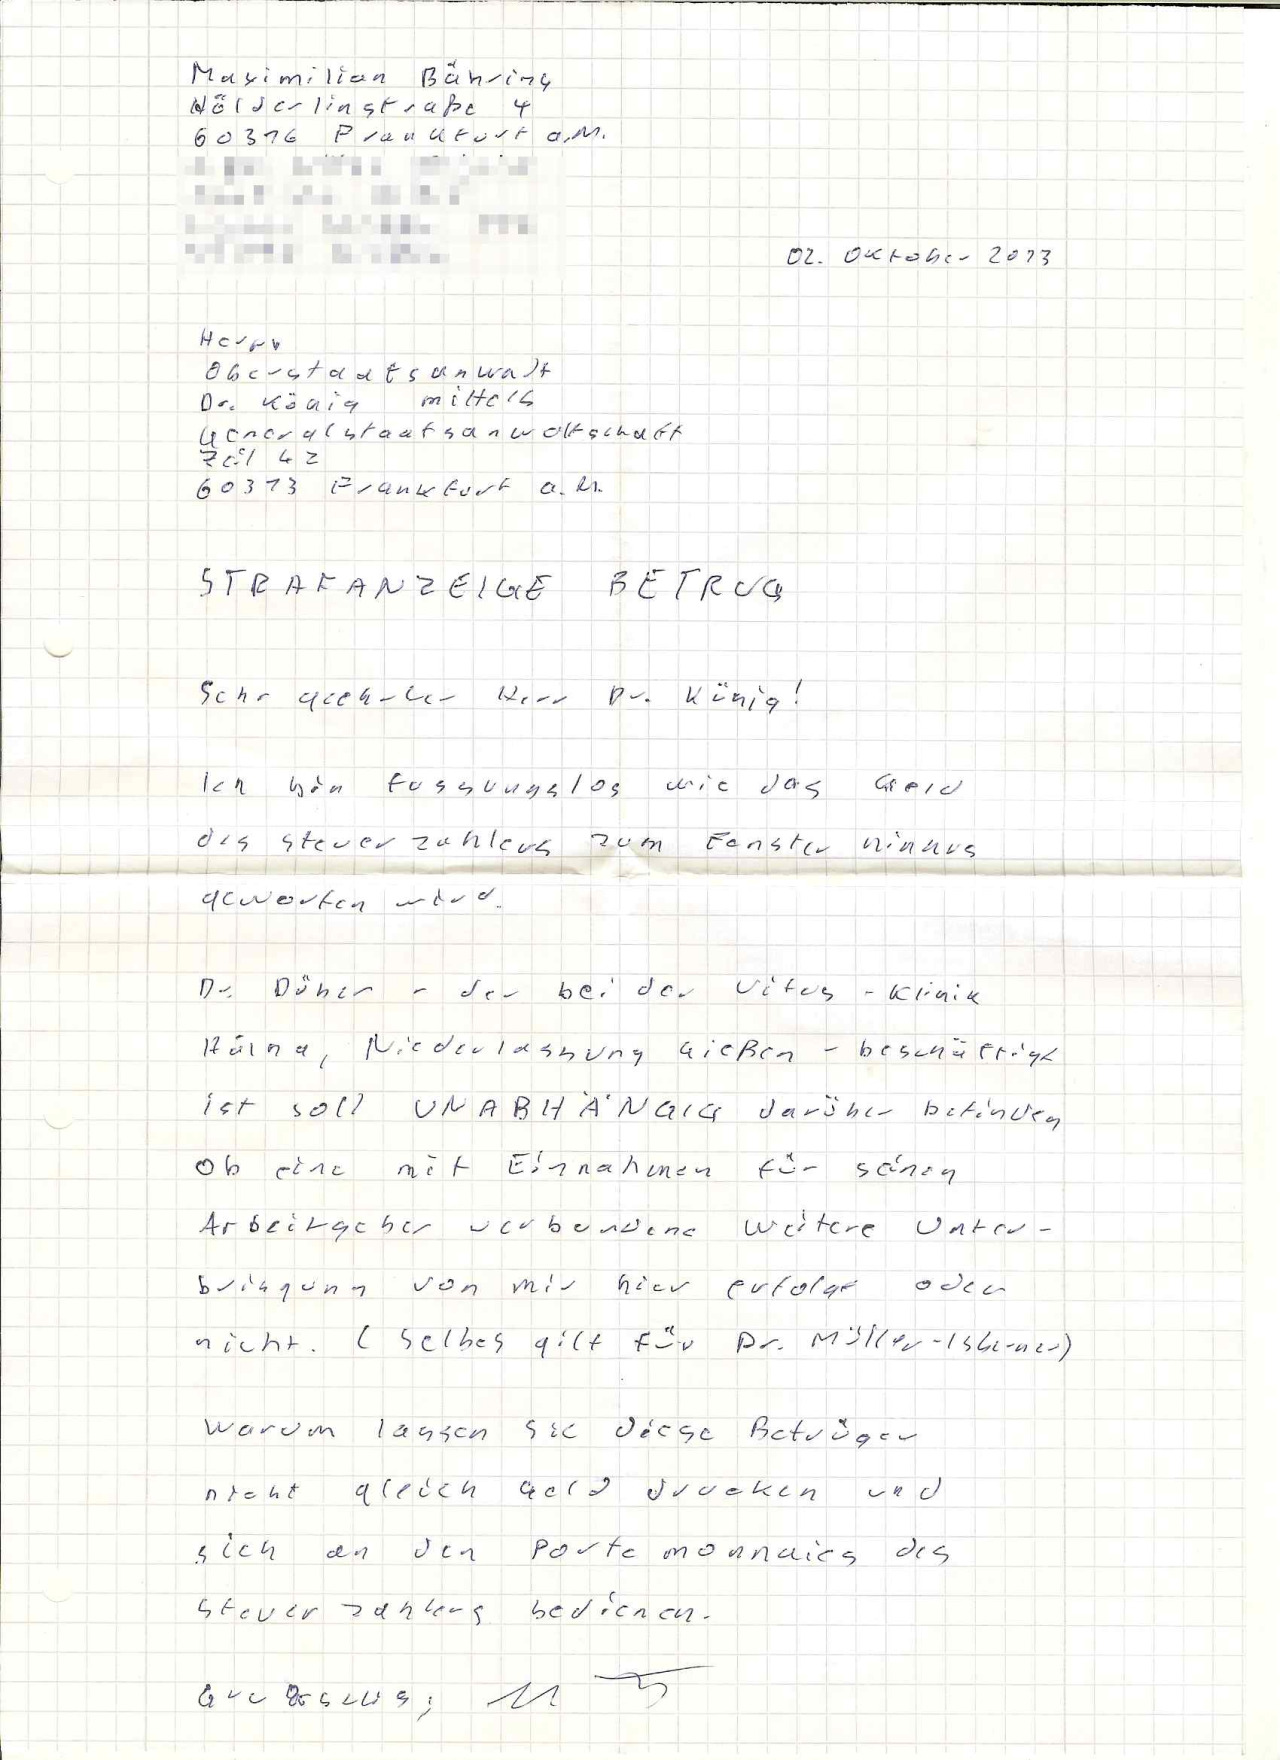 Maximilian Bähring
Hölderlinstraße 4
60316 Frankfurt a.M.
02. Oktober 2013
Herrn
Oberstaatsanwalt
Dr. König mittels
Generalstaatsanwaltschaft
Zeil 42
60313 Frankfurt a.M.
STRAFANZEIGE BETRUG
Sehr geehrter Herr Dr. König!
Ich bin fassungslos wie das Geld
des steuerzahlers zum Fenster hinaus
geworfen wird.
Dr. Düber - der bei der Vitos-Klinik
Haina, Niederlassung Gießen - beschäftigt
ist soll UNABHÄNGIG darüber befinden
ob eine mit Einnahmen für seinen
Arbeitgeber verbundene weitere Unter-
bringung von mir hier erfolgt oder
nicht. (Selbes gilt für Dr. Müller-Isberner)
Warum lassen sie diese Betrüger
nicht gleich Geld drucken und
sich an den Portemonnaies des
steuerzahlers bedienen.